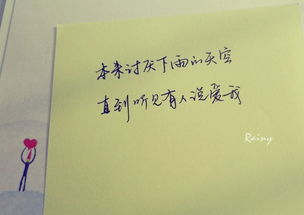 本来讨厌下雨的天空
直到听见有人说爱我
Rainy